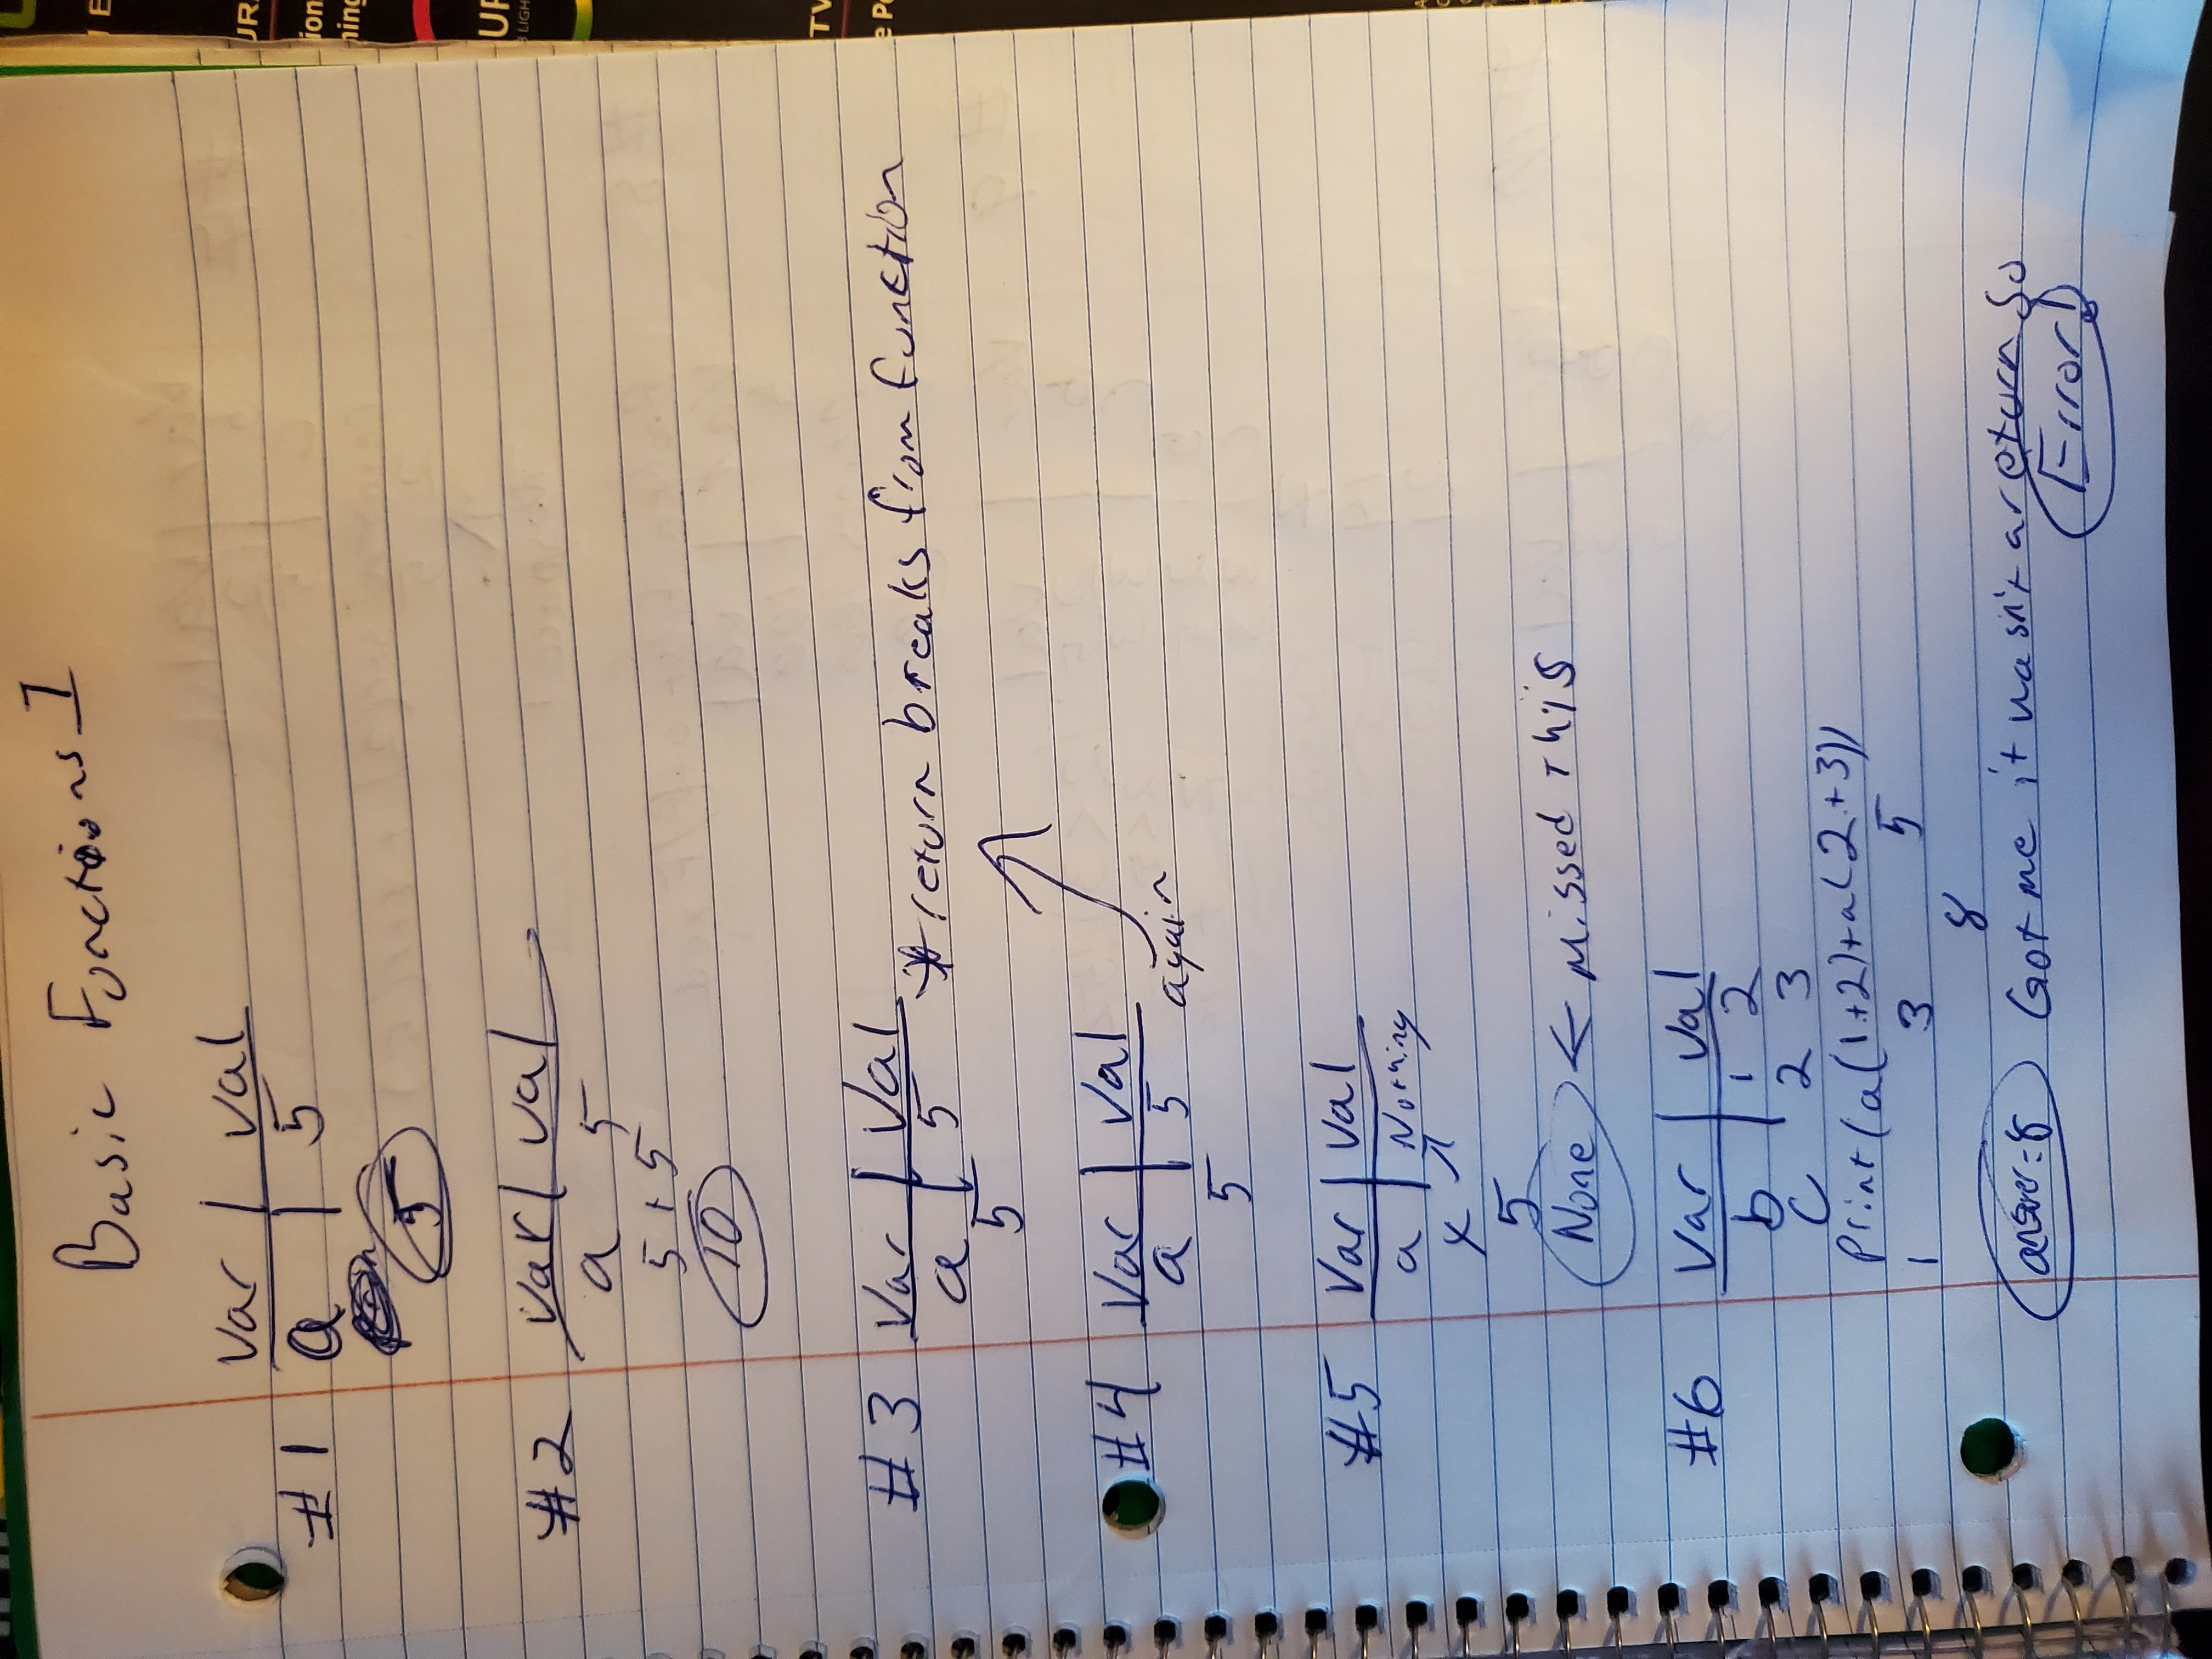 Basic Functions I
var | val
#1 a | 5
5
#2 var | val
a 5
5 + 5
10
#3 Var | Val
a | 5 * return breaks from function
5
#4 Var | Val
a | 5 again
5
#5 Var | Val
a | Nothing
x
5
None ← Missed this
#6 Var | Val
b | 1 2
c 2 3
Print(a(1+2)+a(2+3))
1 3 5
8
answer=8 Got me it wasn't a return so
Error!